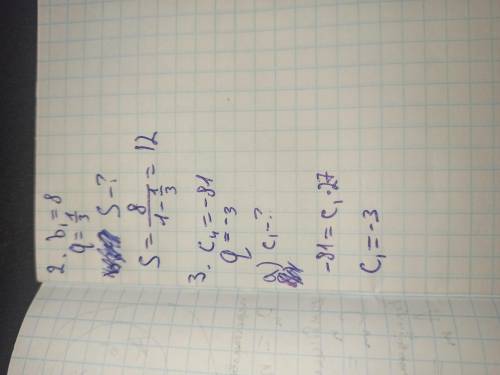 2. b₁ = 8
q = 1/3
S - ?
S = 8/(1 - 1/3) = 12
3. C₄ = -81
q = -3
a) C₁ - ?
-81 = C₁ · 27
C₁ = -3